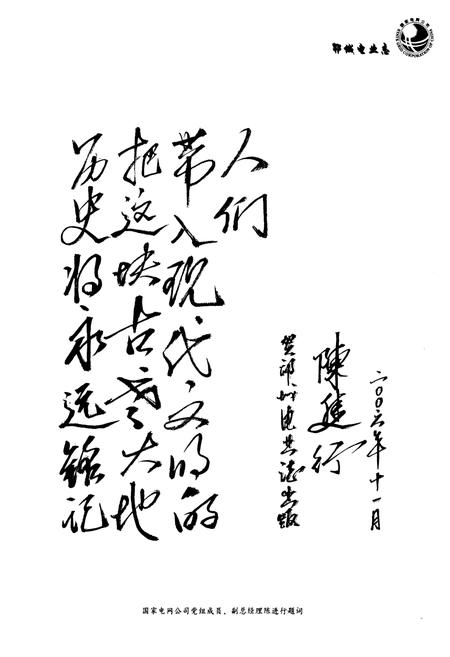 郓城电业志
国家电网公司
STATE GRID CORPORATION OF CHINA
历史将永远铭记
把这块古老大地
带入现代文明的
人们
贺郓城电业志出版
陳進行
二〇〇六年十一月
国家电网公司党组成员、副总经理陈进行题词